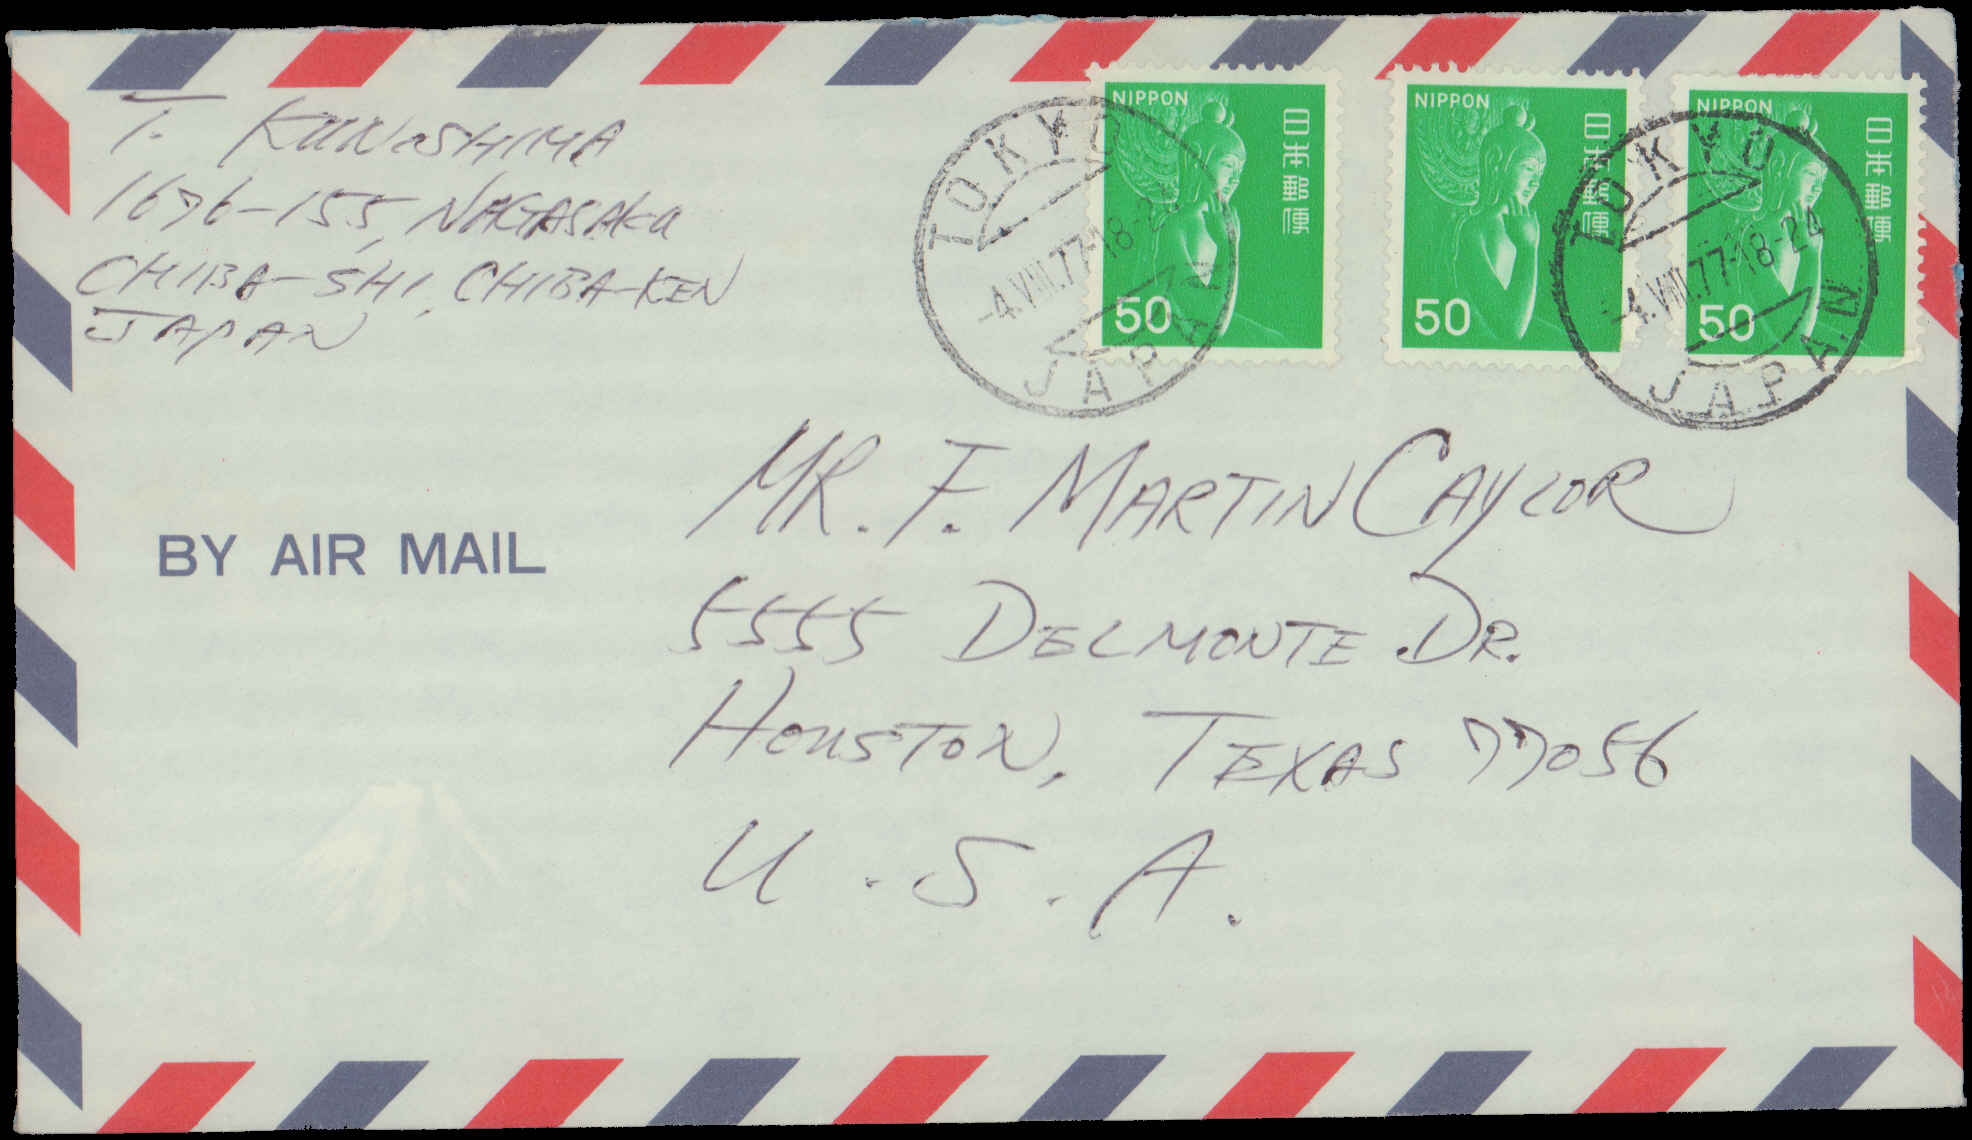 T. KUNOSHIMA
1676-155, NAGASAKU
CHIBA-SHI, CHIBA-KEN
JAPAN
NIPPON
日本郵便
50
NIPPON
日本郵便
50
NIPPON
日本郵便
50
TOKYO
-4.VIII.77-18-24
JAPAN
TOKYO
-4.VIII.77-18-24
JAPAN
BY AIR MAIL
MR. F. MARTIN CAYLOR
5555 DELMONTE DR.
HOUSTON, TEXAS 77056
U.S.A.